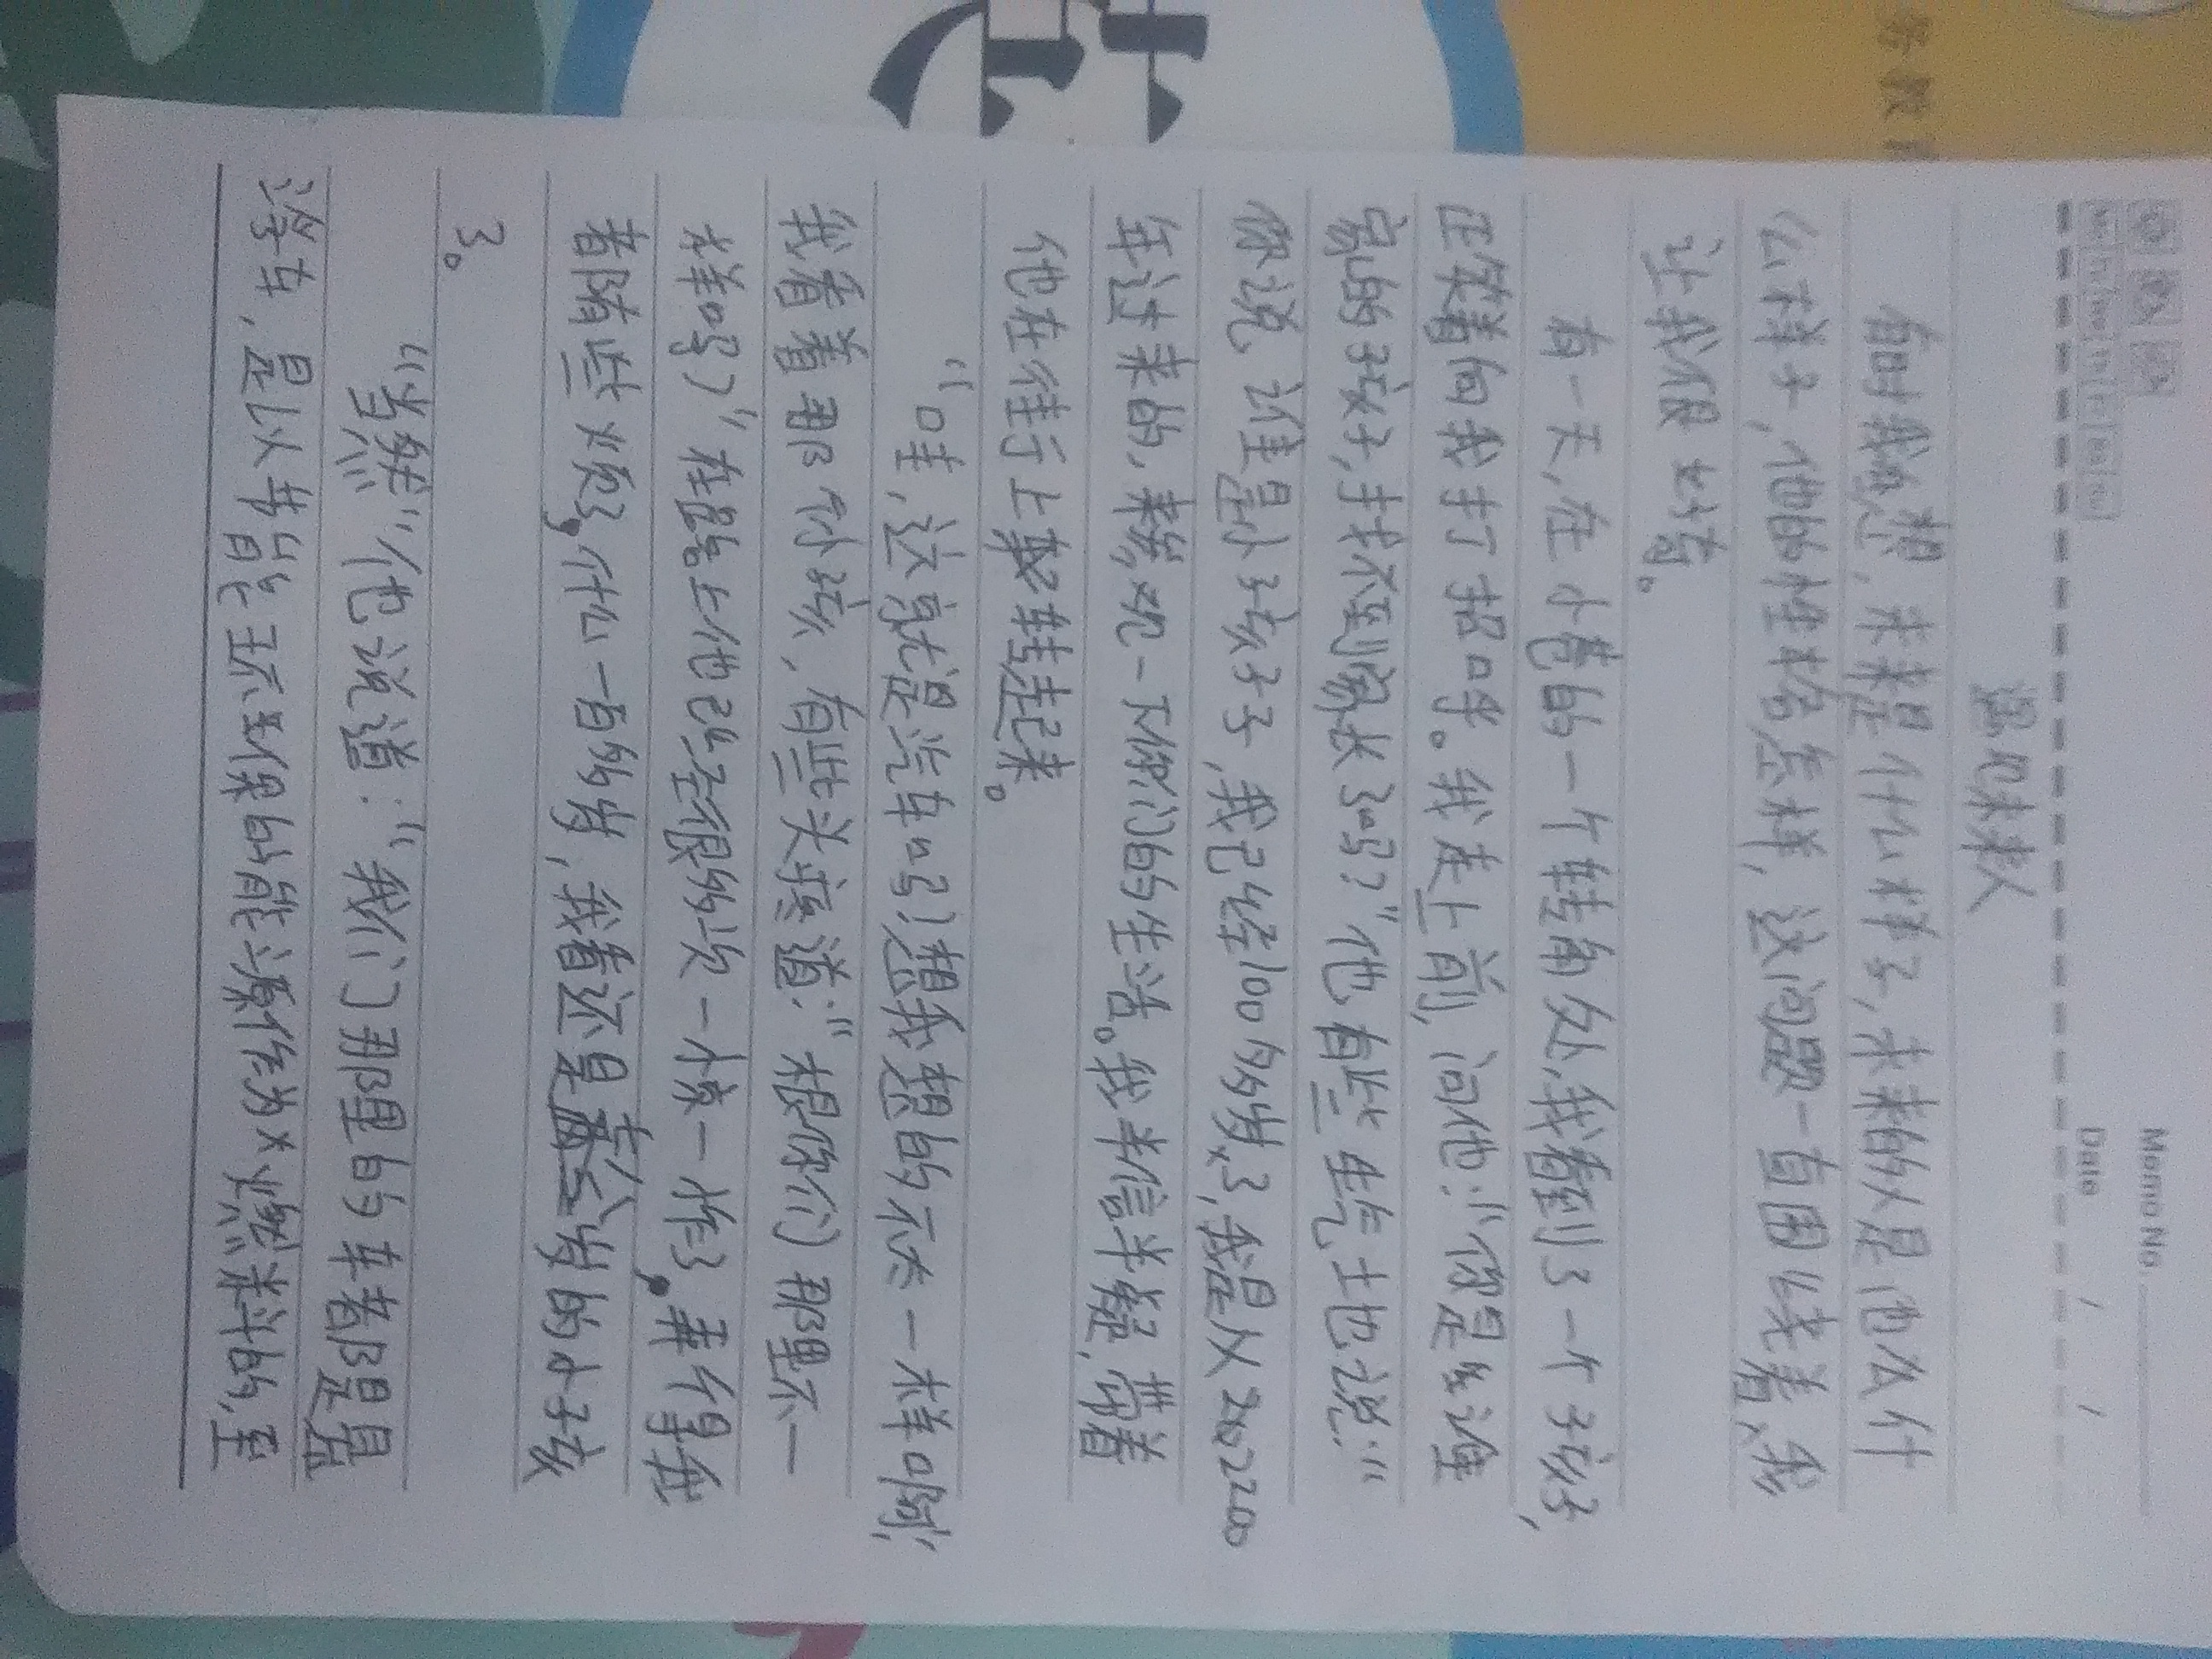 Memo No.
Date / /
遇见未来人
有时我总想，未来是什么样子，未来的人是他么什
么样子，他的性格怎样，这问题一直困绕着我
让我很好奇。
有一天，在小巷的一个转角处，我看到了一个孩子，
正笑着向我打招呼。我走上前，问他：“你是生谁
家的孩子，找不到家长了吗？”他有些生气土也说：“
你说谁是小孩子，我已经100多岁了，我是从2200
年过来的，来参观一下你们的生活。我半信半疑，带着
他在街上转起来。
“哇，这就是汽车吗！想我想的不太一样啊，
我看着那个小孩，有些头疼道：“跟你们那里不一
样吗？”在路上他已经很多次一惊一炸了，弄得我
着随些烦了，什么一百多岁，我看还是岁的小孩
了。
“当然”他说道：“我们那里的车都是
浮车，是以节能环保的能源作为燃料的，里